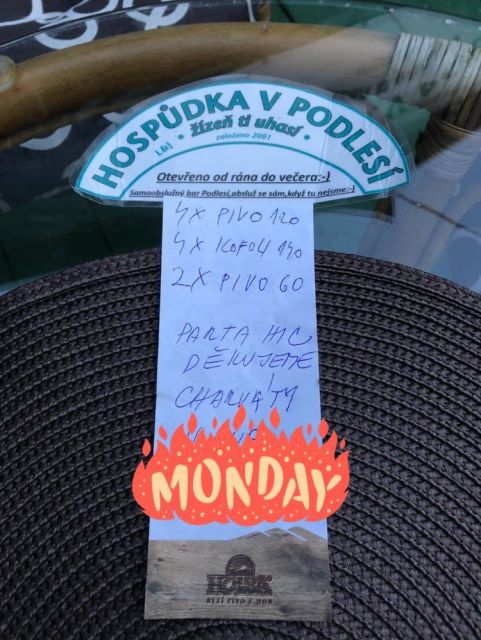 HOSPŮDKA V PODLESÍ
L&J • žízeň ti uhasí •
založeno 2001
Otevřeno od rána do večera:-)
Samoobslužný bar Podlesí,obsluž se sám,když tu nejsme:-)
4X PIVO 120
4X KOFOLA 140
2X PIVO 60
PARTA HIC
DĚKUJEME
CHARVÁTY
MONDAY
HOLBA
RYZÍ PIVO Z HOR